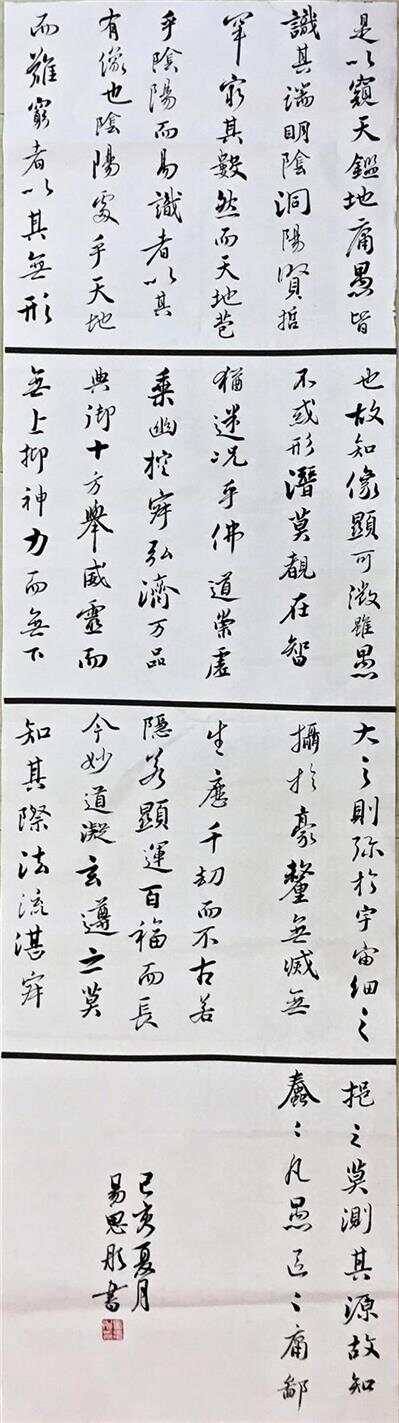 是以窺天鑑地庸愚皆
識其端明陰洞陽賢哲
罕窮其數然而天地苞
乎陰陽而易識者以其
有像也陰陽處乎天地
而難窮者以其無形
也故知像顯可徵雖愚
不惑形潛莫覩在智
猶迷況乎佛道崇虛
乘幽控寂弘濟万品
典御十方舉威靈而
無上抑神力而無下
大之則弥於宇宙細之
攝於豪釐無滅無
生歷千劫而不古若
隱若顯運百福而長
今妙道凝玄遵之莫
知其際法流湛寂
挹之莫測其源故知
蠢〻凡愚區〻庸鄙
己亥夏月
易思彤書